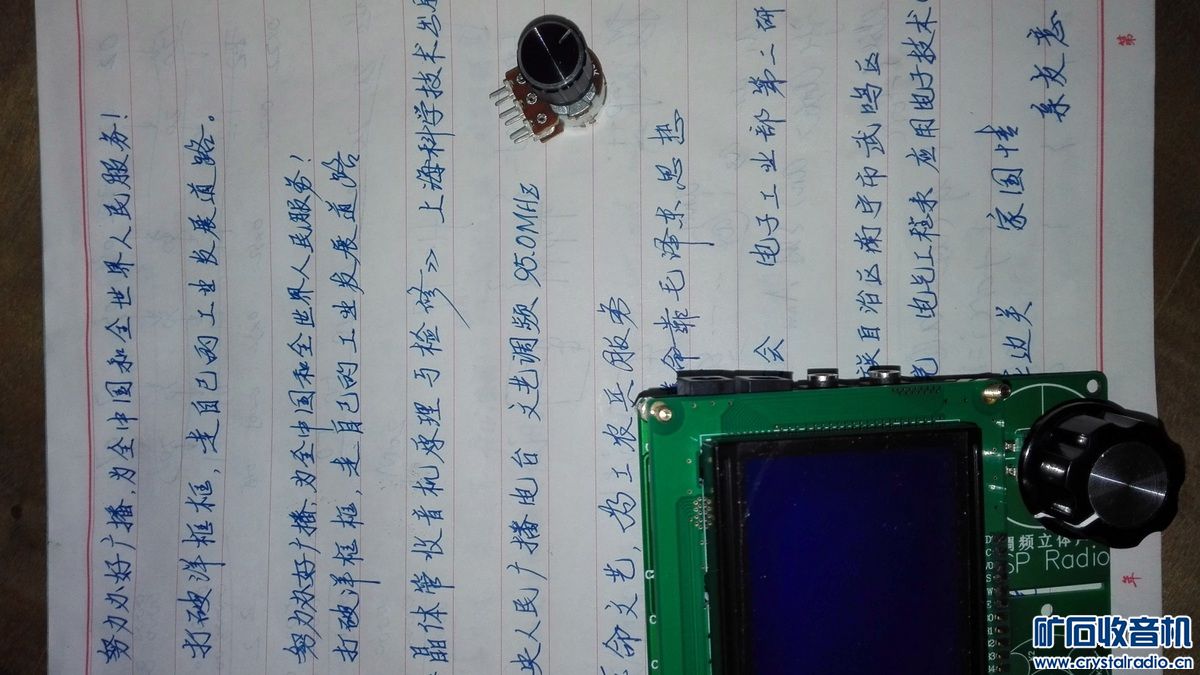 努力办好广播,为全中国和全世界人民服务!
打破洋框框,走自己的工业发展道路。
努力办好广播,为全中国和全世界人民服务!
打破洋框框,走自己的工业发展道路
晶体管收音机原理与检修》 上海科学技术出版
央人民广播电台 文艺调频 95.0MHz
命文艺,为工农兵服务
命靠毛泽东思想
会 电子工业部第二研
族自治区南宁市武鸣区
电气工程术 应用电子技术
边关 家国情
友意
第
年
调频立体
SP Radio
矿石收音机
www.crystalradio.cn